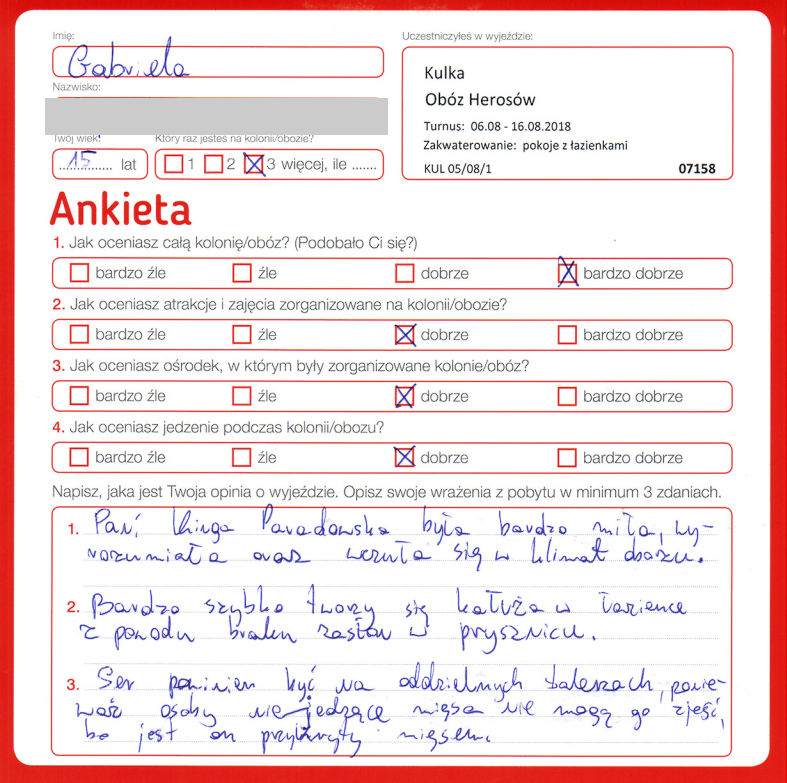 Imię:
Gabriela
Nazwisko:
Twój wiek:
15 lat
Który raz jesteś na kolonii/obozie?
1 2 3 więcej, ile .......
Uczestniczyłeś w wyjeździe:
Kulka
Obóz Herosów
Turnus: 06.08 - 16.08.2018
Zakwaterowanie: pokoje z łazienkami
KUL 05/08/1 07158
Ankieta
1. Jak oceniasz całą kolonię/obóz? (Podobało Ci się?)
bardzo źle źle dobrze bardzo dobrze
2. Jak oceniasz atrakcje i zajęcia zorganizowane na kolonii/obozie?
bardzo źle źle dobrze bardzo dobrze
3. Jak oceniasz ośrodek, w którym były zorganizowane kolonie/obóz?
bardzo źle źle dobrze bardzo dobrze
4. Jak oceniasz jedzenie podczas kolonii/obozu?
bardzo źle źle dobrze bardzo dobrze
Napisz, jaka jest Twoja opinia o wyjeździe. Opisz swoje wrażenia z pobytu w minimum 3 zdaniach.
1. Pani Kinga Paradowska była bardzo miła, wy-
rozumiała oraz wczuła się w klimat obozu.
2. Bardzo szybko tworzy się kałuża w łazience
z powodu braku zasłon w prysznicu.
3. Ser powinien być na oddzielnych talerzach, ponie-
waż osoby nie jedzące mięsa nie mogą go zjeść,
bo jest on przykryty mięsem.